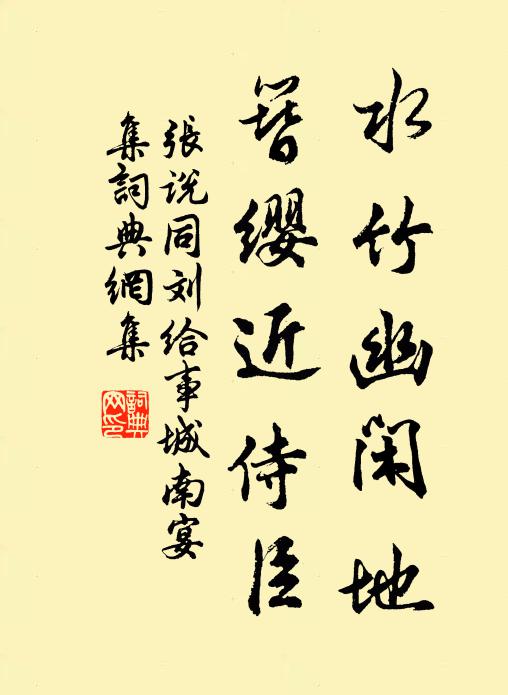 水竹幽闲地
簪缨近侍臣
張说同刘给事城南宴
集詞典網集
詞典
网印